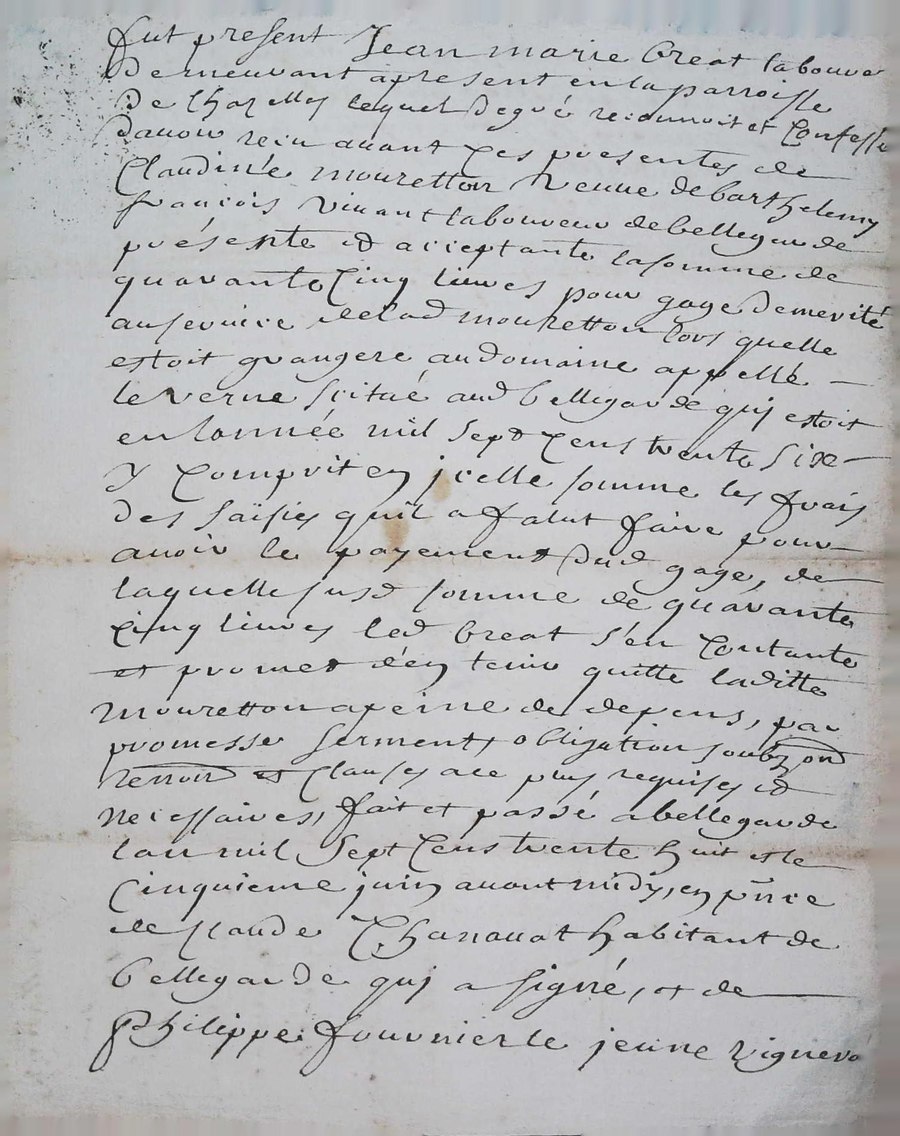 fut present Jean marie Creat laboure
demeurant apresent en la parroisse
de Chazelles lequel de gré reconnoit et Confesse
davoir recu avant Ces presentes de
Claudinée mouretton veuve de barthelemy
francois vivant laboureur de bellegarde
présente et acceptante la somme de
quarante Cinq livres pour gage demerité
au service delad mouretton lors quelle
estoit grangere au domaine appellé
le verne scitué aud bellegarde qui estoit
en lannée mil sept Cens trente six
y Comprit en jcelle somme les frais
des saisies quil a falut faire pour
avoir le payement dud gage, de
laquelle susd somme de quarante
Cinq livres led Creat s'en Contante
et promet d'en tenir quitte laditte
mouretton apeine de depens, par
promesse serment, obligation soubz on
renon et Clauses ace plus requises et
necessaires, fait et passé a bellegarde
lan mil Sept Cens trente huit et le
Cinquieme juin avant midy, en pnce
de Claude Chanavat habitant de
bellegarde qui a signé, et de
Philippe fournier le jeune vignero